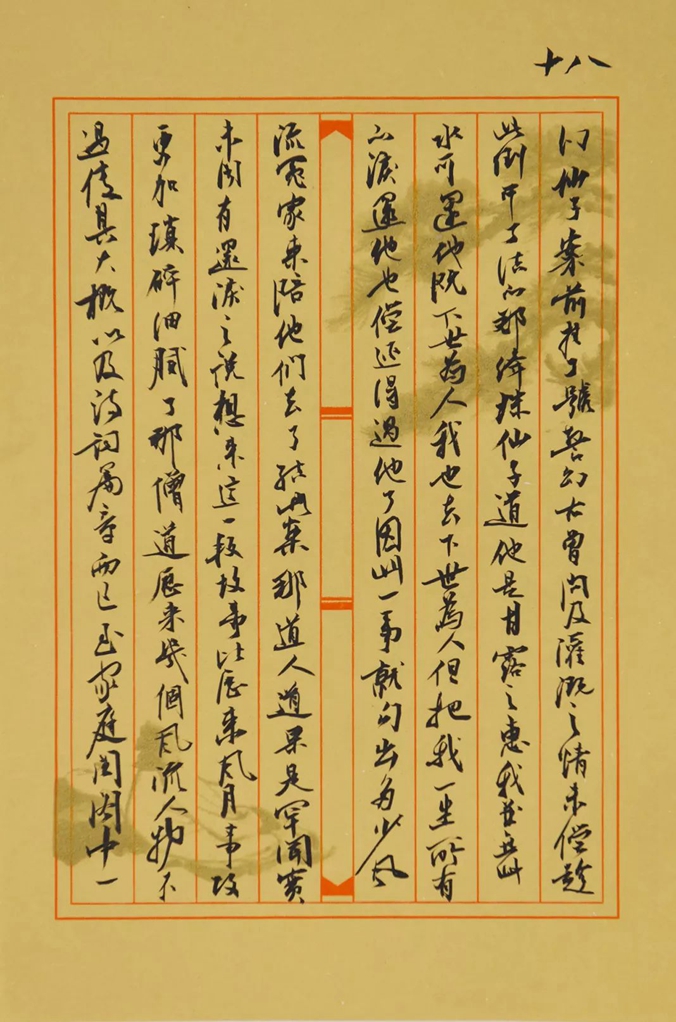 十八
幻仙子案前挂了號警幻亦曾问及灌溉之情未偿趁
此倒可了结的那绛珠仙子道他是甘露之惠我並無此
水可還他既下世為人我也去下世為人但把我一生所有
的淚還他也偿还得過他了因此一事就勾出多少风
流冤家来陪他们去了结此案那道人道果是罕闻實
未闻有還淚之说想来這一段故事比历来风月事故
更加瑣碎细腻了那僧道历来幾個风流人物不
過传其大概以及诗词篇章而已至家庭闺阁中一